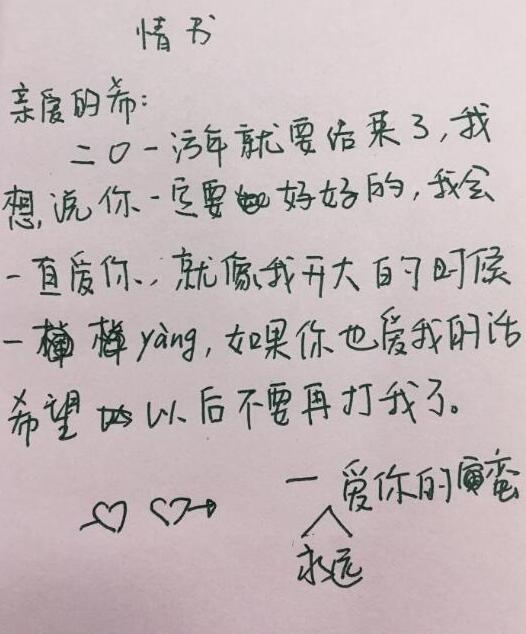 情书
亲爱的希:
二〇一污年就要结束了,我
想,说你一定要好好的,我会
一直爱你.,就像我开大白的时候
一yàng,如果你也爱我的话
希望以后不要再打我了。
一爱你的蛮
永远